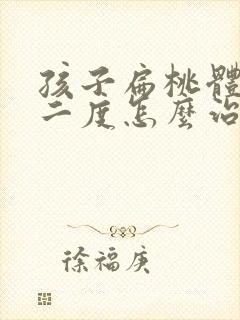 孩子扁桃體
二度怎麼治
徐福庚